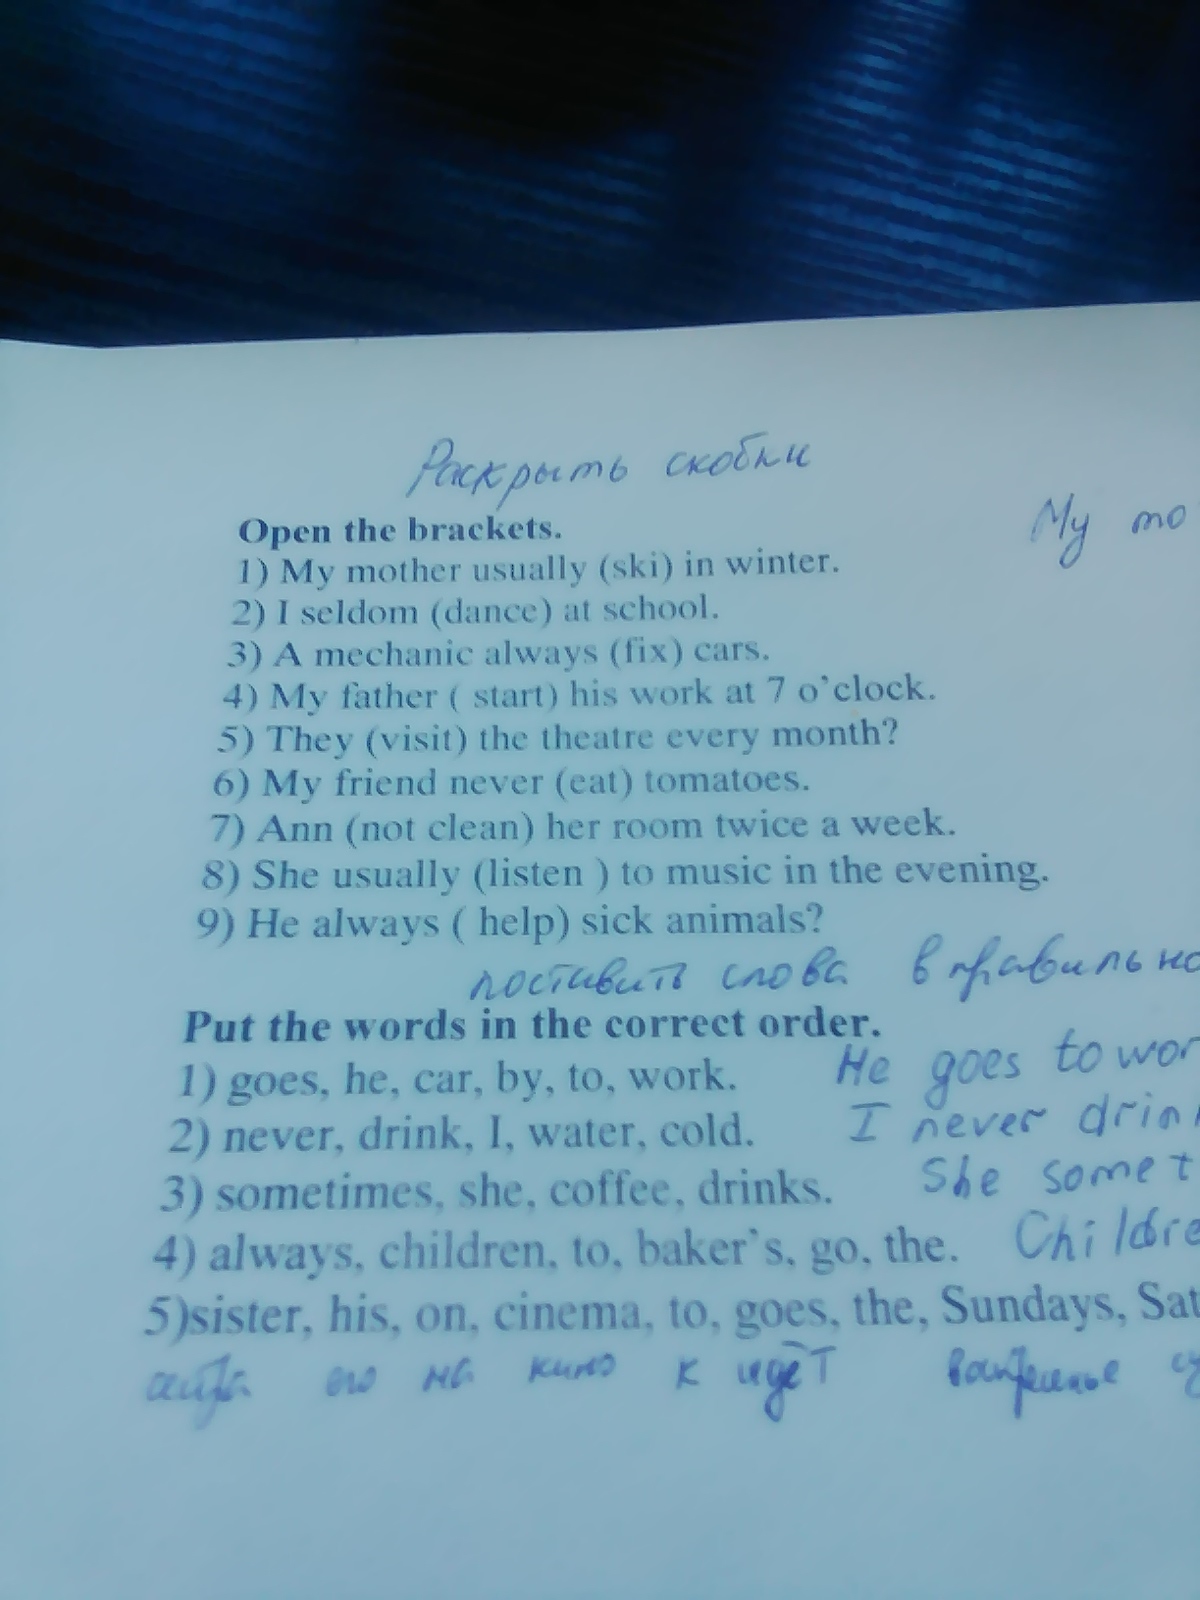 Раскрыть скобки
Open the brackets.
My mo
1) My mother usually (ski) in winter.
2) I seldom (dance) at school.
3) A mechanic always (fix) cars.
4) My father ( start) his work at 7 o’clock.
5) They (visit) the theatre every month?
6) My friend never (eat) tomatoes.
7) Ann (not clean) her room twice a week.
8) She usually (listen ) to music in the evening.
9) He always ( help) sick animals?
поставить слова в правильно
Put the words in the correct order.
1) goes, he, car, by, to, work. He goes to wor
2) never, drink, I, water, cold. I never drink
3) sometimes, she, coffee, drinks. She somet
4) always, children, to, baker’s, go, the. Childre
5)sister, his, on, cinema, to, goes, the, Sundays, Sat
его на кино к идёт